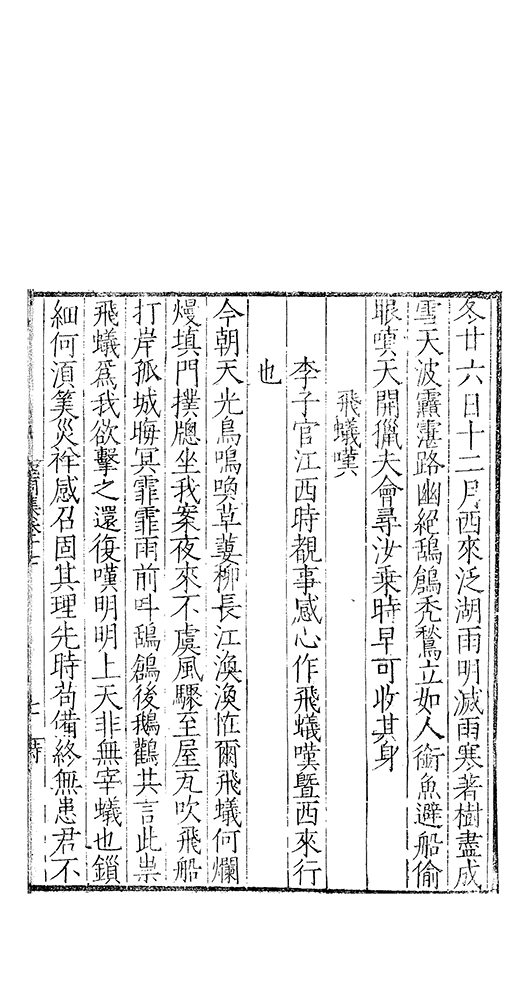 冬廿六日十二月西來泛湖雨明滅雨寒著樹盡成
雪天波路幽絕鴰鶬禿鶖立如人銜魚避船偷
眼嗔天開獵夫會尋汝乗時早可收其身
飛蟻嘆
李子官江西時覩事感心作飛蟻嘆曁西來行
也
今朝天光鳥鳴喚草萋柳長江渙渙恠爾飛蟻何爛
熳填門撲牕坐我案夜來不虞風驟至屋瓦吹飛船
打岸孤城晦冥霏霏雨前呌鴰鶬後鵝鸛共言此祟
飛蟻爲我欲擊之還復嘆明明上天非無宰蟻也鎖
細何湏筭災祥感召固其理先時茍備終無患君不
七